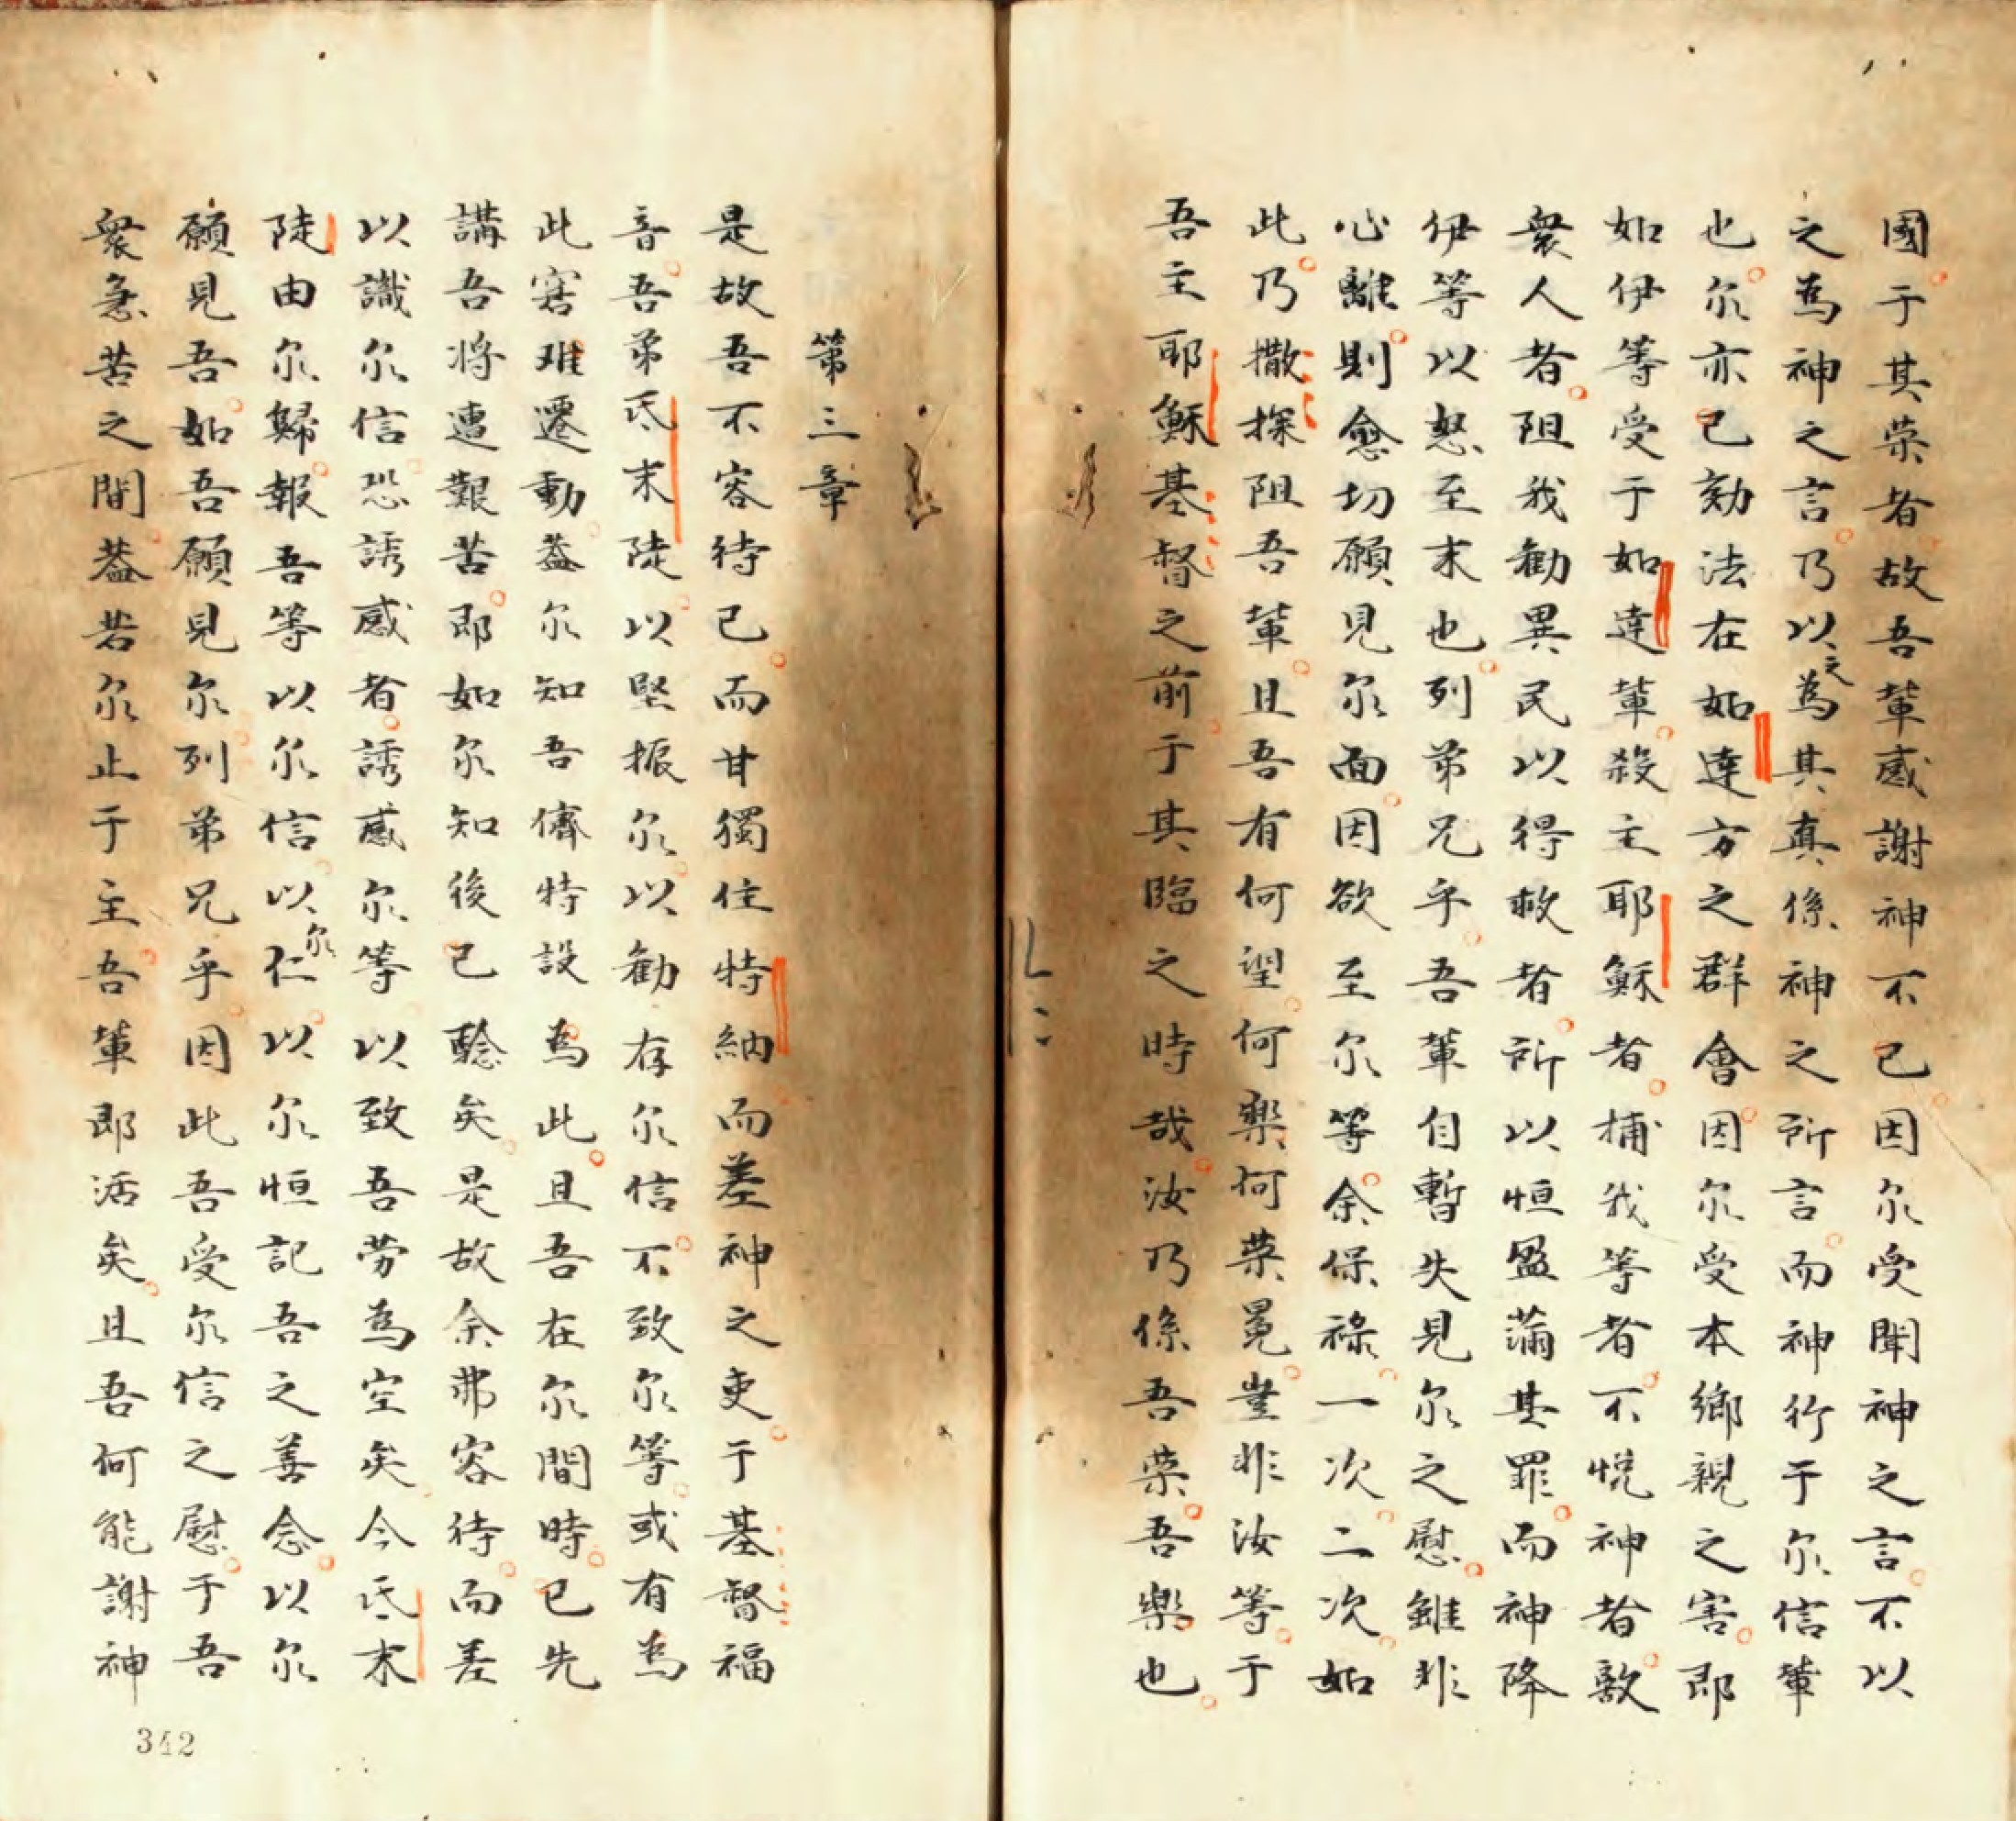 國于其荣者故吾輩感謝神不已因尔受聞神之言不以
之為神之言乃以之為其真係神之所言而神行于尔信輩
也尔亦已効法在如達方之群會因尔受本鄉親之害即
如伊等受于如達輩殺主耶穌者捕我等者不悅神者敵
衆人者阻我勸異民以得救者所以恒盈滿其罪而神降
伊等以怒至末也列弟兄乎吾輩自暫失見尔之慰雖非
心離則愈切願見尔面因欲至尔等余保祿一次二次如
此乃撒探阻吾輩且吾有何望何樂何荣冕豈非汝等于
吾主耶穌基督之前于其臨之時哉汝乃係吾荣吾樂也
第三章
是故吾不容待已而甘獨住特納而差神之吏于基督福
音吾弟氐末陡以堅振尔以勸存尔信不致尔等或有為
此窘难遷動葢尔知吾儕特設為此且吾在尔間時已先
講吾将遭艱苦即如尔知後已驗矣是故余弗容待而差
以識尔信恐誘惑者誘惑尔等以致吾劳為空矣今氐末
陡由尔歸報吾等以尔信以尔仁以尔恒記吾之善念以尔
願見吾如吾願見尔列弟兄乎因此吾受尔信之慰于吾
衆急苦之間葢若尔止于主吾輩即活矣且吾何能謝神
342